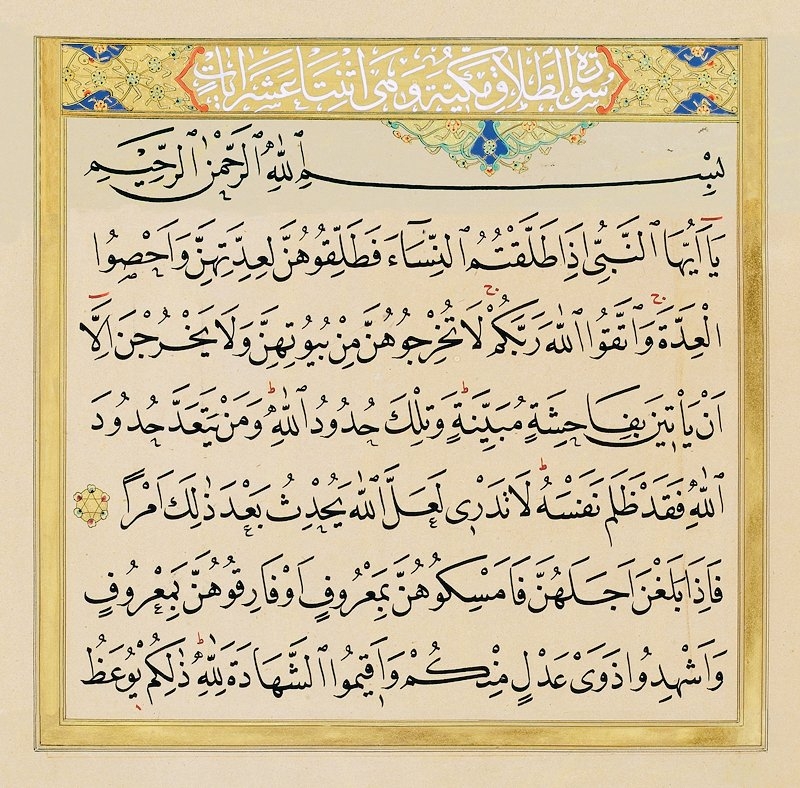 سورة الطلاق مكية وهى اثنتا عشر ايات
بِسْمِ ٱللّٰهِ ٱلرَّحْمٰنِ ٱلرَّحِيمِ
يَٓا اَيُّهَا ٱلنَّبِىُّ اِذَا طَلَّقْتُمُ ٱلنِّسَٓاءَ فَطَلِّقُوهُنَّ لِعِدَّتِهِنَّ وَاَحْصُوا
ٱلْعِدَّةَ ج وَٱتَّقُوا ٱللّٰهَ رَبَّكُمْ ج لَا تُخْرِجُوهُنَّ مِنْ بُيُوتِهِنَّ وَلَا يَخْرُجْنَ اِلَّٓا
اَنْ يَأْتِينَ بِفَاحِشَةٍ مُبَيِّنَةٍ ط وَتِلْكَ حُدُودُ ٱللّٰهِ ط وَمَنْ يَتَعَدَّ حُدُودَ
ٱللّٰهِ فَقَدْ ظَلَمَ نَفْسَهُ ط لَا تَدْرِى لَعَلَّ ٱللّٰهَ يُحْدِثُ بَعْدَ ذٰلِكَ اَمْرًا
فَاِذَا بَلَغْنَ اَجَلَهُنَّ فَاَمْسِكُوهُنَّ بِمَعْرُوفٍ اَوْ فَارِقُوهُنَّ بِمَعْرُوفٍ
وَاَشْهِدُوا ذَوَىْ عَدْلٍ مِنْكُمْ وَاَقِيمُوا ٱلشَّهَادَةَ لِلّٰهِ ط ذٰلِكُمْ يُوعَظُ